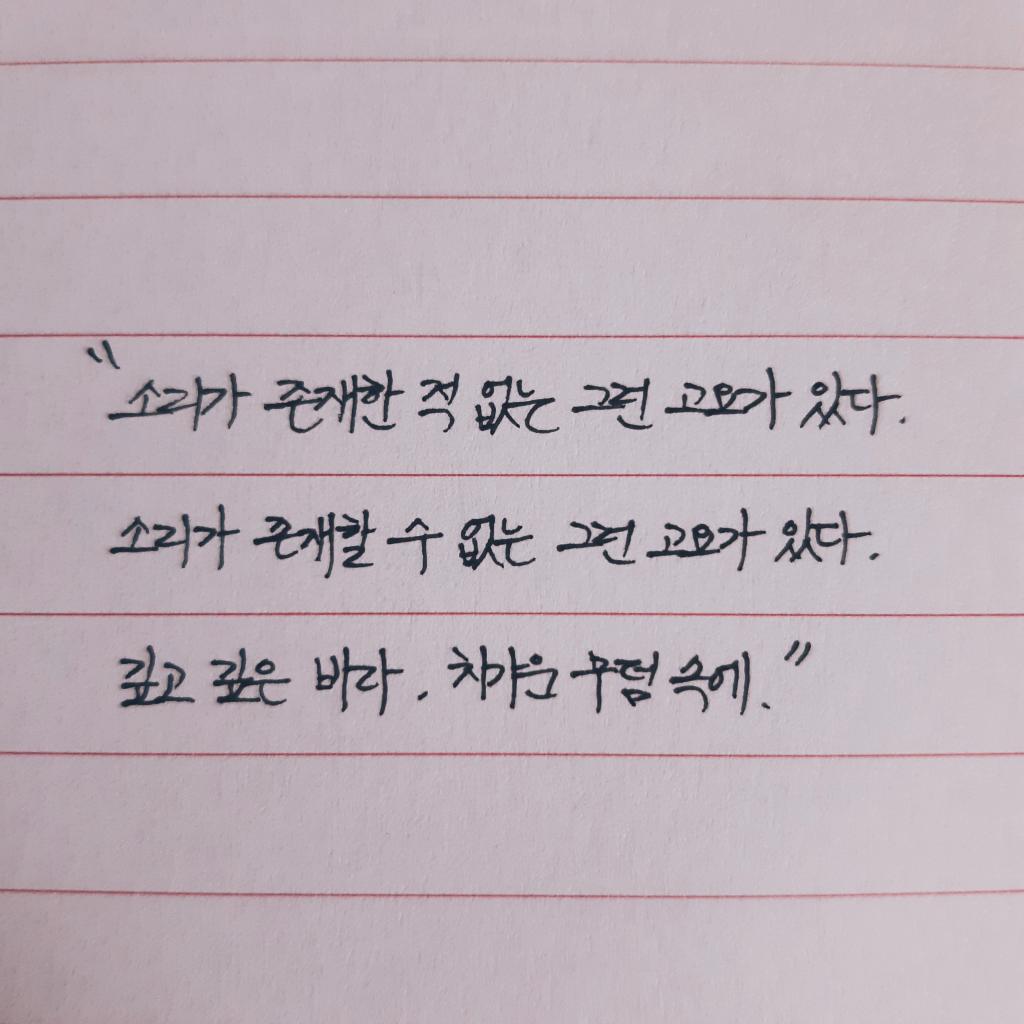 "소리가 존재한 적 없는 그런 고요가 있다.
소리가 존재할 수 없는 그런 고요가 있다.
깊고 깊은 바다, 차가운 무덤 속에."